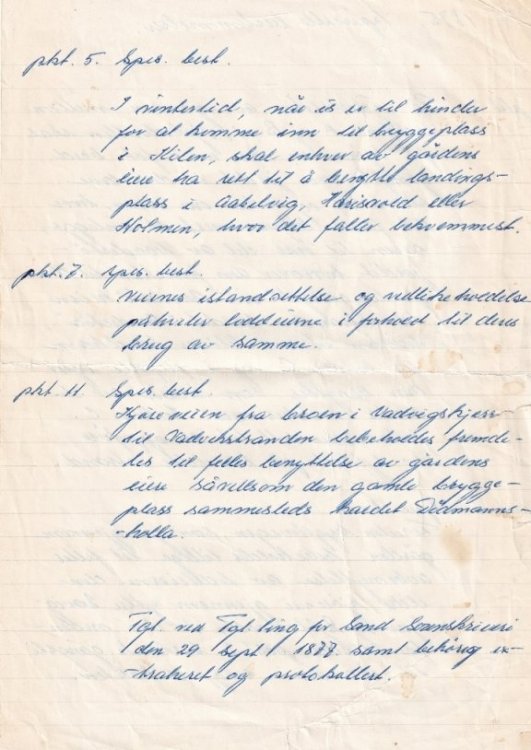 pkt. 5. Spes. best.
I vintertid, når is er til hinder
for å komme inn til bryggeplass
i Kilen, skal enhver av gårdens
eiere ha rett til å benytte landings-
plass i Aabelvig, Harisvold eller
Holmen, hvor det faller bekvemmest.
pkt. 7. Spes. best.
Veienes istandsettelse og vedlikeholdelse
påhviler loddeierne i forhold til deres
brug av samme.
pkt. 11. Spes. best.
Kjøreveien fra broen i Vadvigskjerr
til Vadvikstranden bebeholdes fremde-
les til felles benyttelse av gårdens
eiere såvelsom den gamle brygge-
plass sammesteds kaldet Dødmanns-
holla.
Tgl. ved Tgl. ting for Sand Sorenskriveri
den 29 sept. 1877 samt behørig ex-
traheret og protokollert.